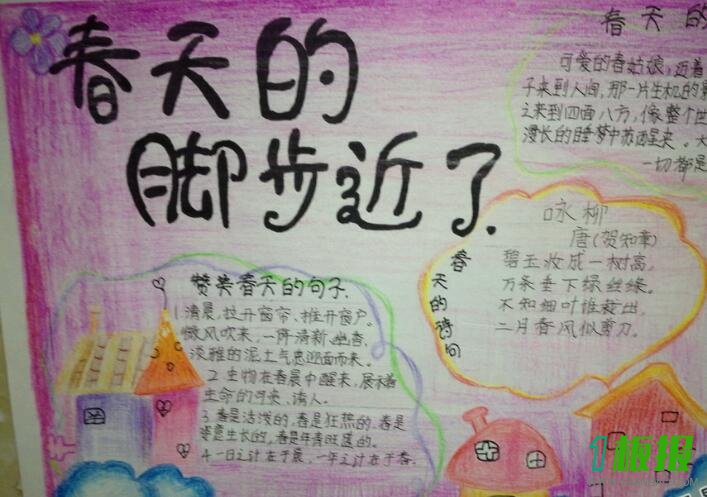 春天的
脚步近了
春天的
可爱的春姑娘，迈着
子来到人间，那一片生机的
之来到四面八方，像整个世
漫长的睡梦中苏醒来。大
一切都是
咏柳
唐(贺知章)
春天的诗句
碧玉妆成一树高，
万条垂下绿丝绦。
不知细叶谁裁出，
二月春风似剪刀。
赞美春天的句子.
1.清晨，拉开窗帘，推开窗户。
微风吹来，一阵清新
淡雅的泥土气息迎面而来。
2.生物在春晨中醒来，展
生命的河
3.春是活泼的，春是狂热的，春是
生长的，春是年青旺盛的。
4.一日之计在于晨，一年之计在于春.
1板报